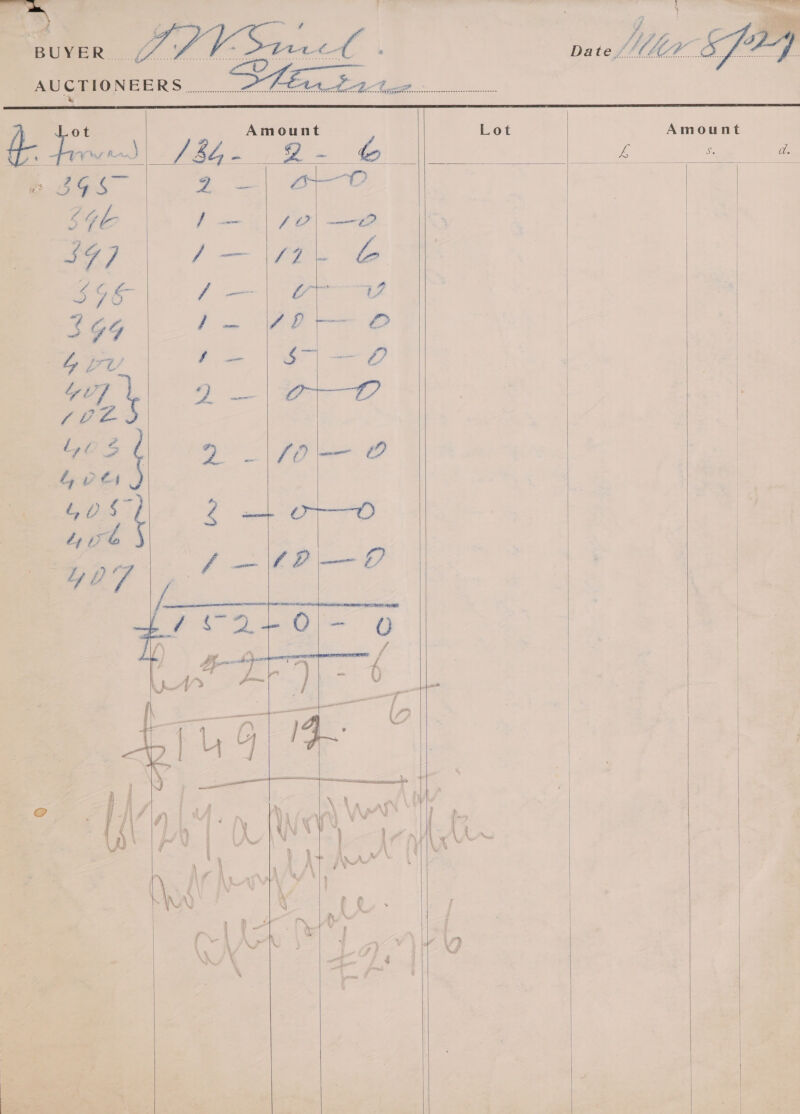 BUYER J.W. Sinel.
Date Mar 8/027
AUCTIONEERS Stevens
Lot Amount Lot Amount
forward 134- 2 - 6 £ s. d.
395 2 — 0—0
396 1 — 10—0
397 1 — 12 - 6
398 1 — 0—0
399 1 - 10—0
400 1 — 5—0
401 } 2 — 0—0
402 }
403 } 2 - 10—0
404 }
405 } 3 — 0—0
406 }
407 1 — 10—0
£152-0 - 0
less 2-7-6
£149 12. 6
lot 267. a Wood mortar
not bought, but stolen
after sale.
£2.7-6